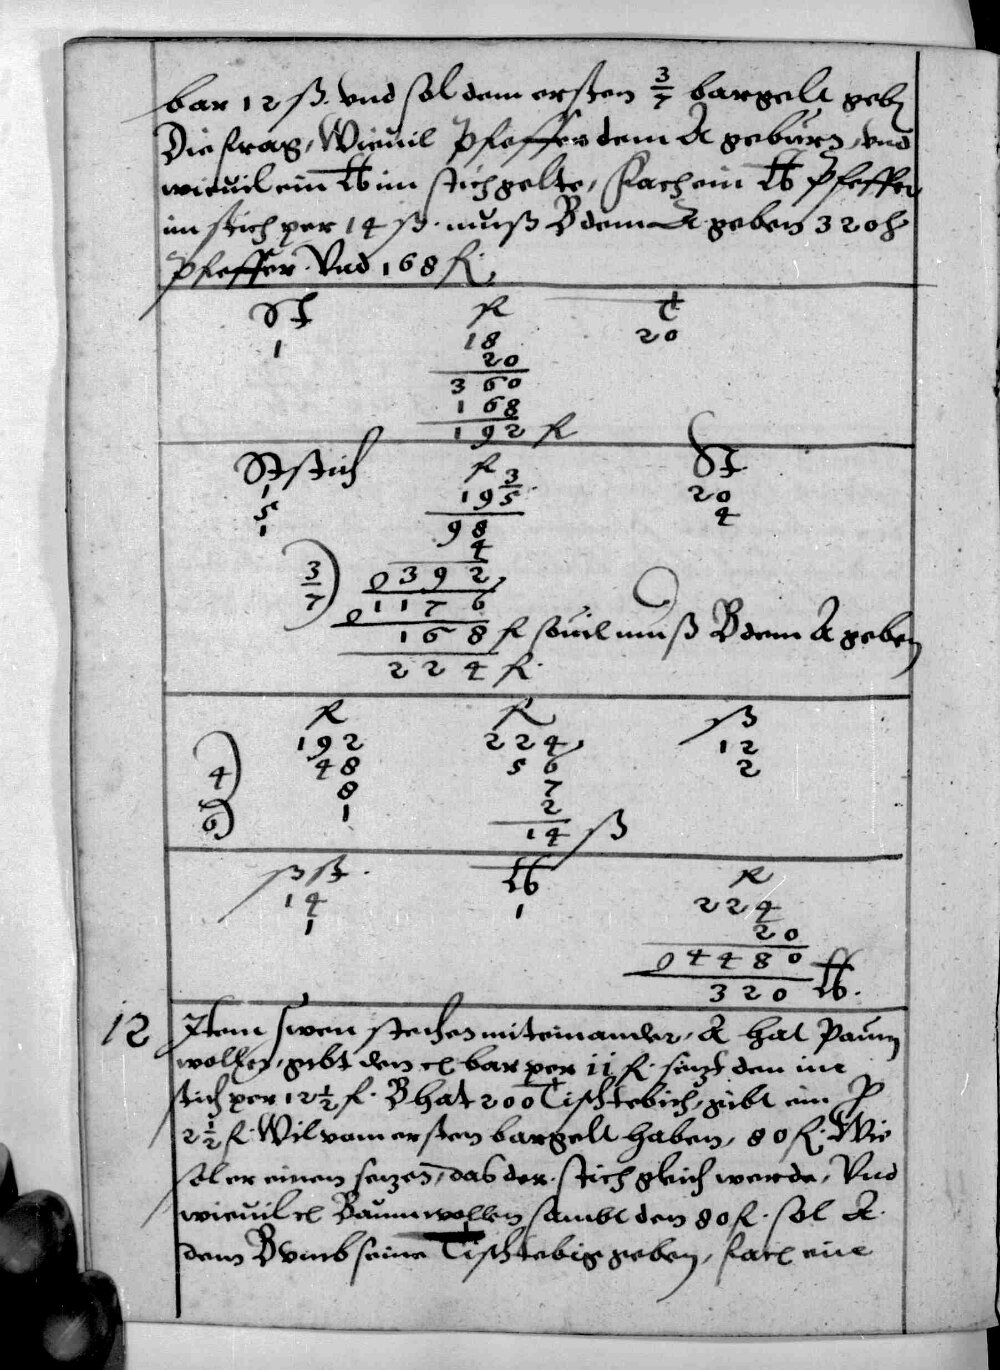 bar 12 ß. vnd sol dem ersten 3/7 bargelt geb̄
Die frag, Wieuil Pfeffer dem A gebürn, vnd
wieuil ein ℔ im stich gelte, Facit ein ℔ Pfeffer
im stich per 14 ß. muß B dem A geben 320 ℔
Pfeffer. Vnd 168 fl.
St fl c
1 18 20
20
360
168
192 fl
St stich fl St
1 19 3/5 20
5 98 4
1 4
3/7) 0392
01176
168 fl souil muß B dem A geben
224 fl.
fl fl ß
192 224 12
4) 48 56 2
6) 8 7
1 2
14 ß
ß st. ℔ fl
14 1 224
1 20
04480
320 ℔.
12 Item zwen stechen mit einander, A hat Paum
wollen, gibt den c bar per 11 fl. setzt den im
stich per 12 1/2 fl. B hat 200 Tischtebich, gibt ein P
2 1/2 fl. Wil vom ersten bargelt haben, 80 fl. Wie
sol er einen setzen, das der stich gleich werde, Vnd
wieuil c Baumwollen sambt den 80 fl. sol A.
dem B vmb seine Tischtebig geben, facit ein